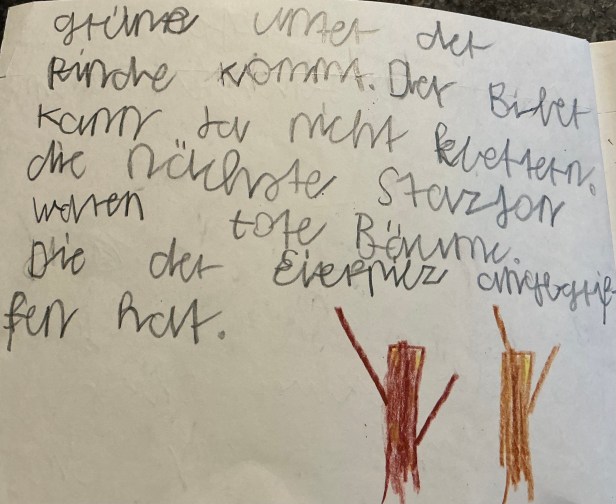 grüne unter der
Rinde kommt. Der Biber
kann ja nicht klettern.
die nächste Starzjon
waren tote Bäume.
Die der Eierpilz angegrif-
fen hat.